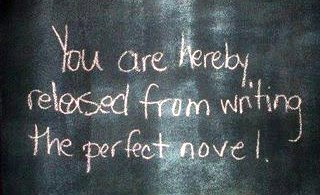 You are hereby
released from writing
the perfect novel.